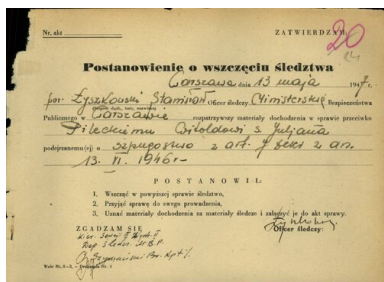 Nr. akt
ZATWIERDZAM:
20
Postanowienie o wszczęciu śledztwa
Warszawa dnia 13 maja 1947 r.
por. Żyszkowski Stanisław Oficer śledczy Ministerstwa Bezpieczeństwa
Publicznego w Warszawie rozpatrzywszy materiały dochodzenia w sprawie przeciwko
Pileckiemu Witoldowi s. Juljana
podejrzanemu(ej) o szpiegostwo z art. 7 dekr. z dn.
13. VI. 1946 r.
POSTANOWIŁ:
1. Wszcząć w powyższej sprawie śledztwo,
2. Przyjąć sprawę do swego prowadzenia,
3. Uznać materiały dochodzenia za materiały śledcze i załączyć je do akt sprawy.
ZGADZAM SIĘ
Oficer śledczy:
Kier. Sekcji II Wydz. II
Dep. Śledcz. M.B.P.